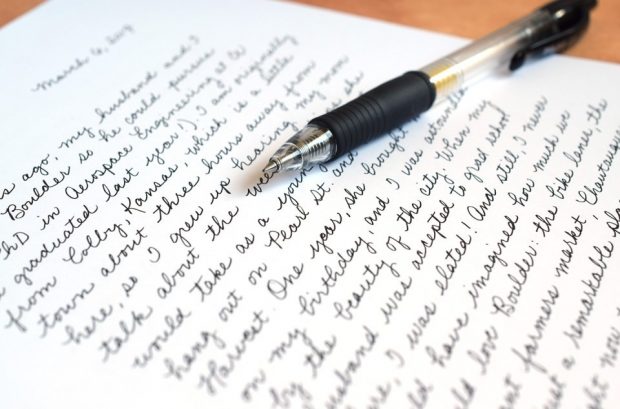 March 6, 2019
ago, my husband and I
Boulder so he could pursue
PhD in Aerospace Engineering at CU
graduated last year!) I am originally
from Colby, Kansas, which is a little
town about three hours away from
here, so I grew up hearing my mom
talk about the she
would take as a young
hang out on Pearl St. and
Harvest. One year, she brought
on my birthday, and I was astounded
by the beauty of the city. When my
husband was accepted to grad school
I was elated! And still, I never
have imagined how much we
love Boulder: the bike lanes, the
farmers market, Chautauqua
a remarkable
now